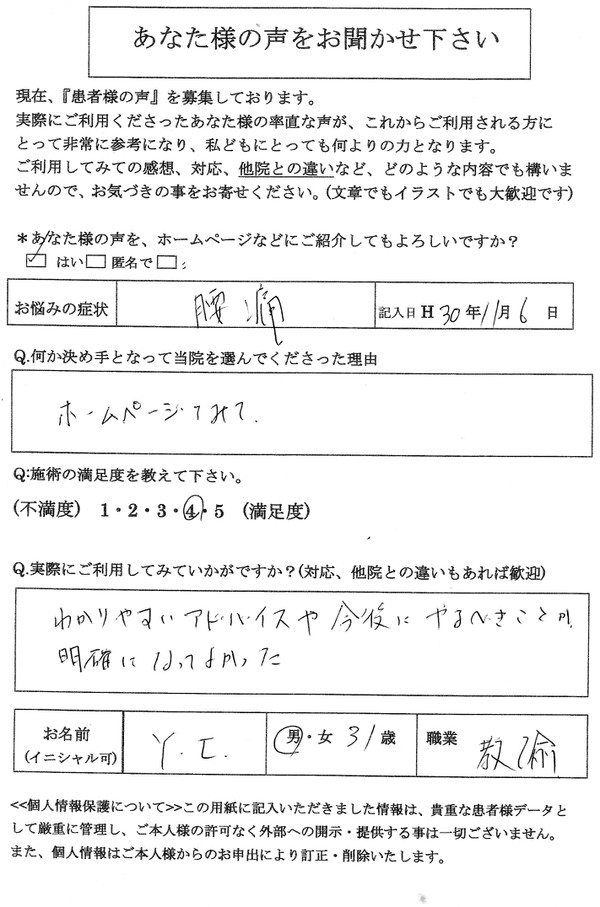 あなた様の声をお聞かせ下さい
現在、『患者様の声』を募集しております。
実際にご利用くださったあなた様の率直な声が、これからご利用される方に
とって非常に参考になり、私どもにとっても何よりの力となります。
ご利用してみての感想、対応、他院との違いなど、どのような内容でも構いま
せんので、お気づきの事をお寄せください。(文章でもイラストでも大歓迎です)
*あなた様の声を、ホームページなどにご紹介してもよろしいですか?
☑ はい □ 匿名で □
お悩みの症状 腰痛 記入日 H 30 年 11 月 6 日
Q.何か決め手となって当院を選んでくださった理由
ホームページてみて.
Q:施術の満足度を教えて下さい。
(不満度) 1・2・3・4・5 (満足度)
Q.実際にご利用してみていかがですか?(対応、他院との違いもあれば歓迎)
わかりやすいアドバイスや今後にやるべきことが
明確になってよかった
お名前 Y. I. 男・女 31 歳 職業 教諭
(イニシャル可)
<<個人情報保護について>>この用紙に記入いただきました情報は、貴重な患者様データと
して厳重に管理し、ご本人様の許可なく外部への開示・提供する事は一切ございません。
また、個人情報はご本人様からのお申出により訂正・削除いたします。